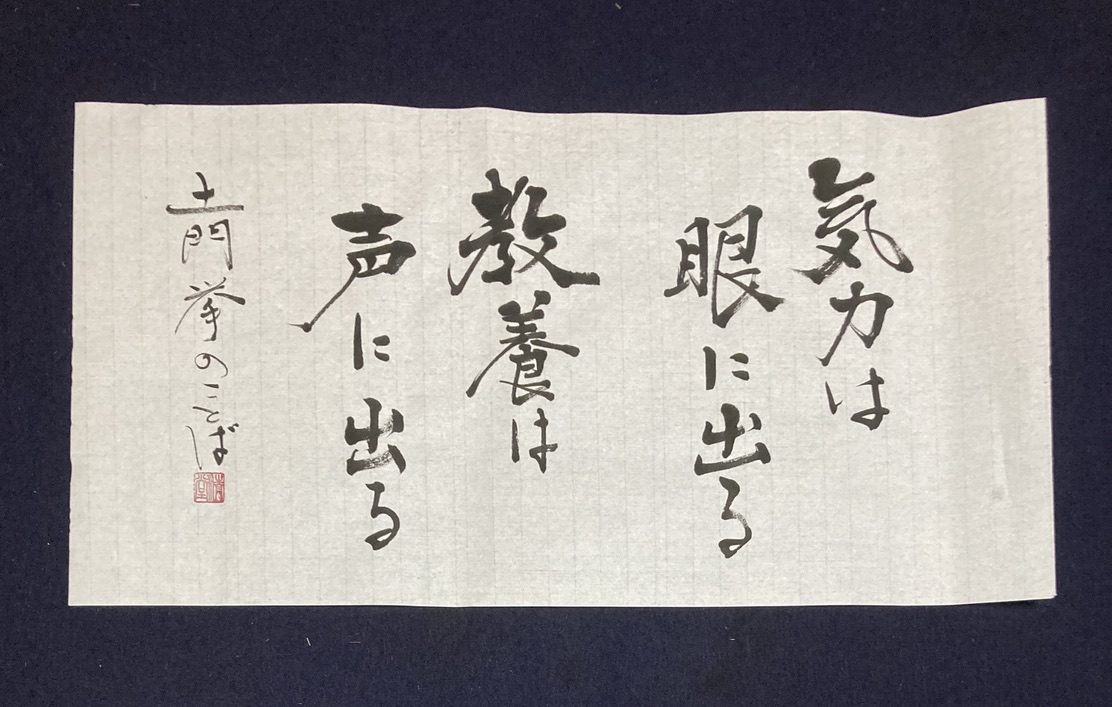 気力は
眼に出る
教養は
声に出る
土門拳のことば